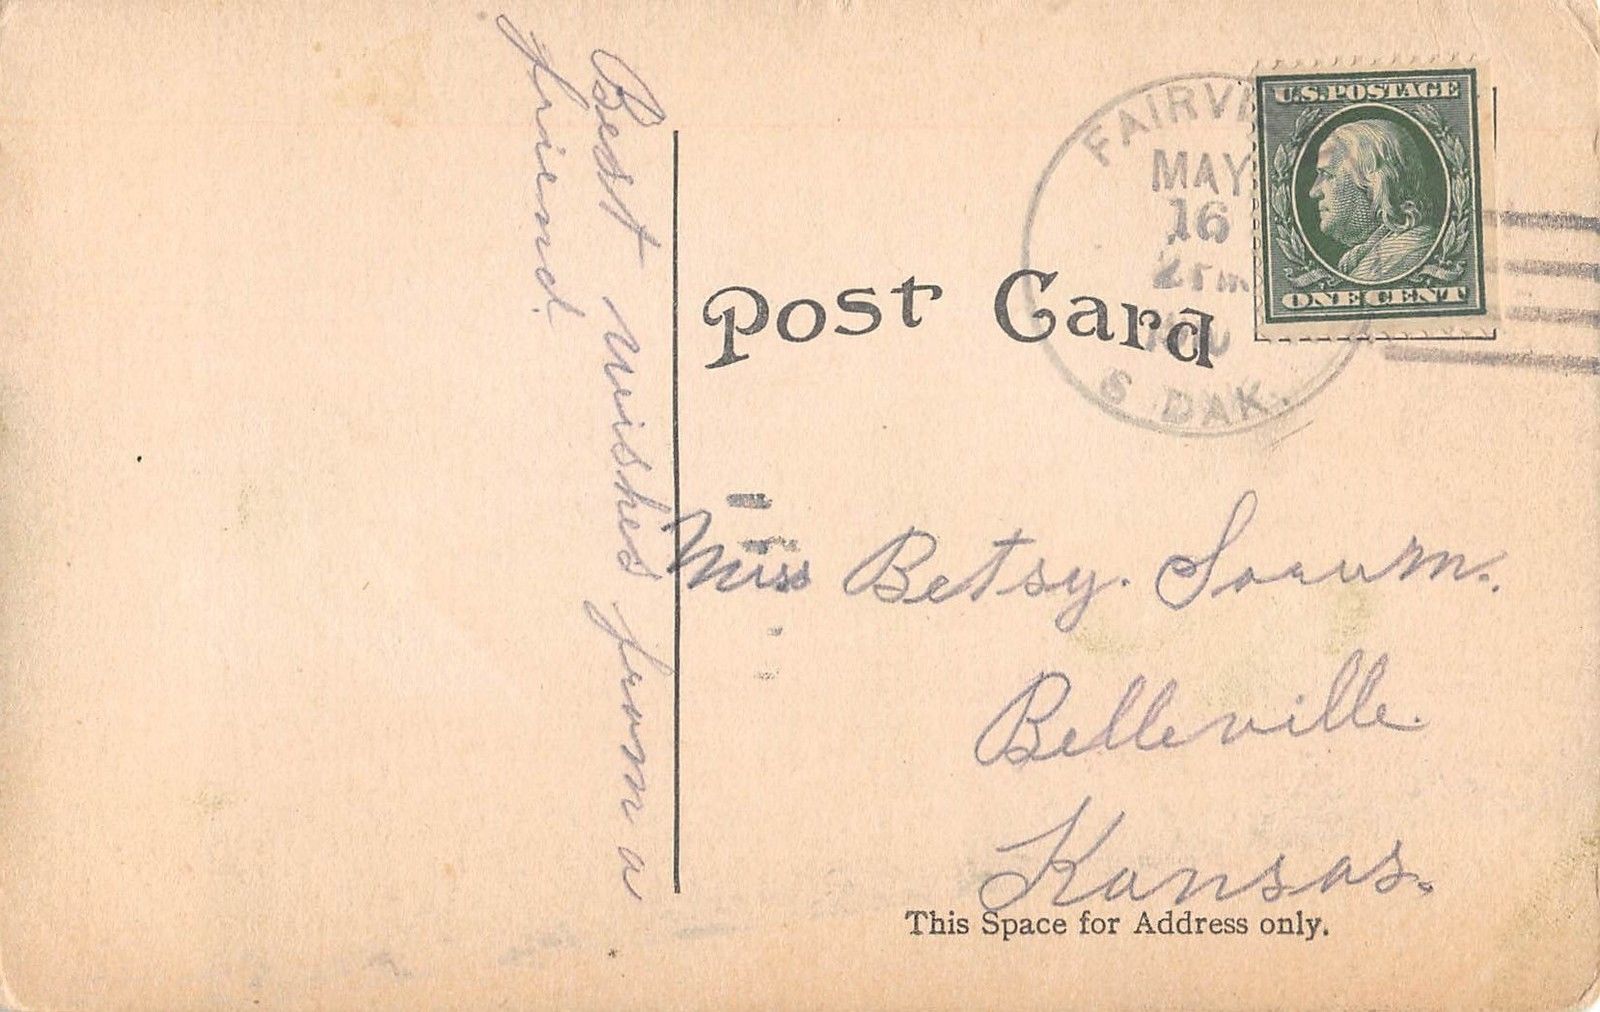 Best wishes from a
friend.
FAIRV
MAY
16
S DAK.
U.S. POSTAGE
ONE CENT
Post Card
Miss Betsy.
Belleville.
Kansas.
This Space for Address only.